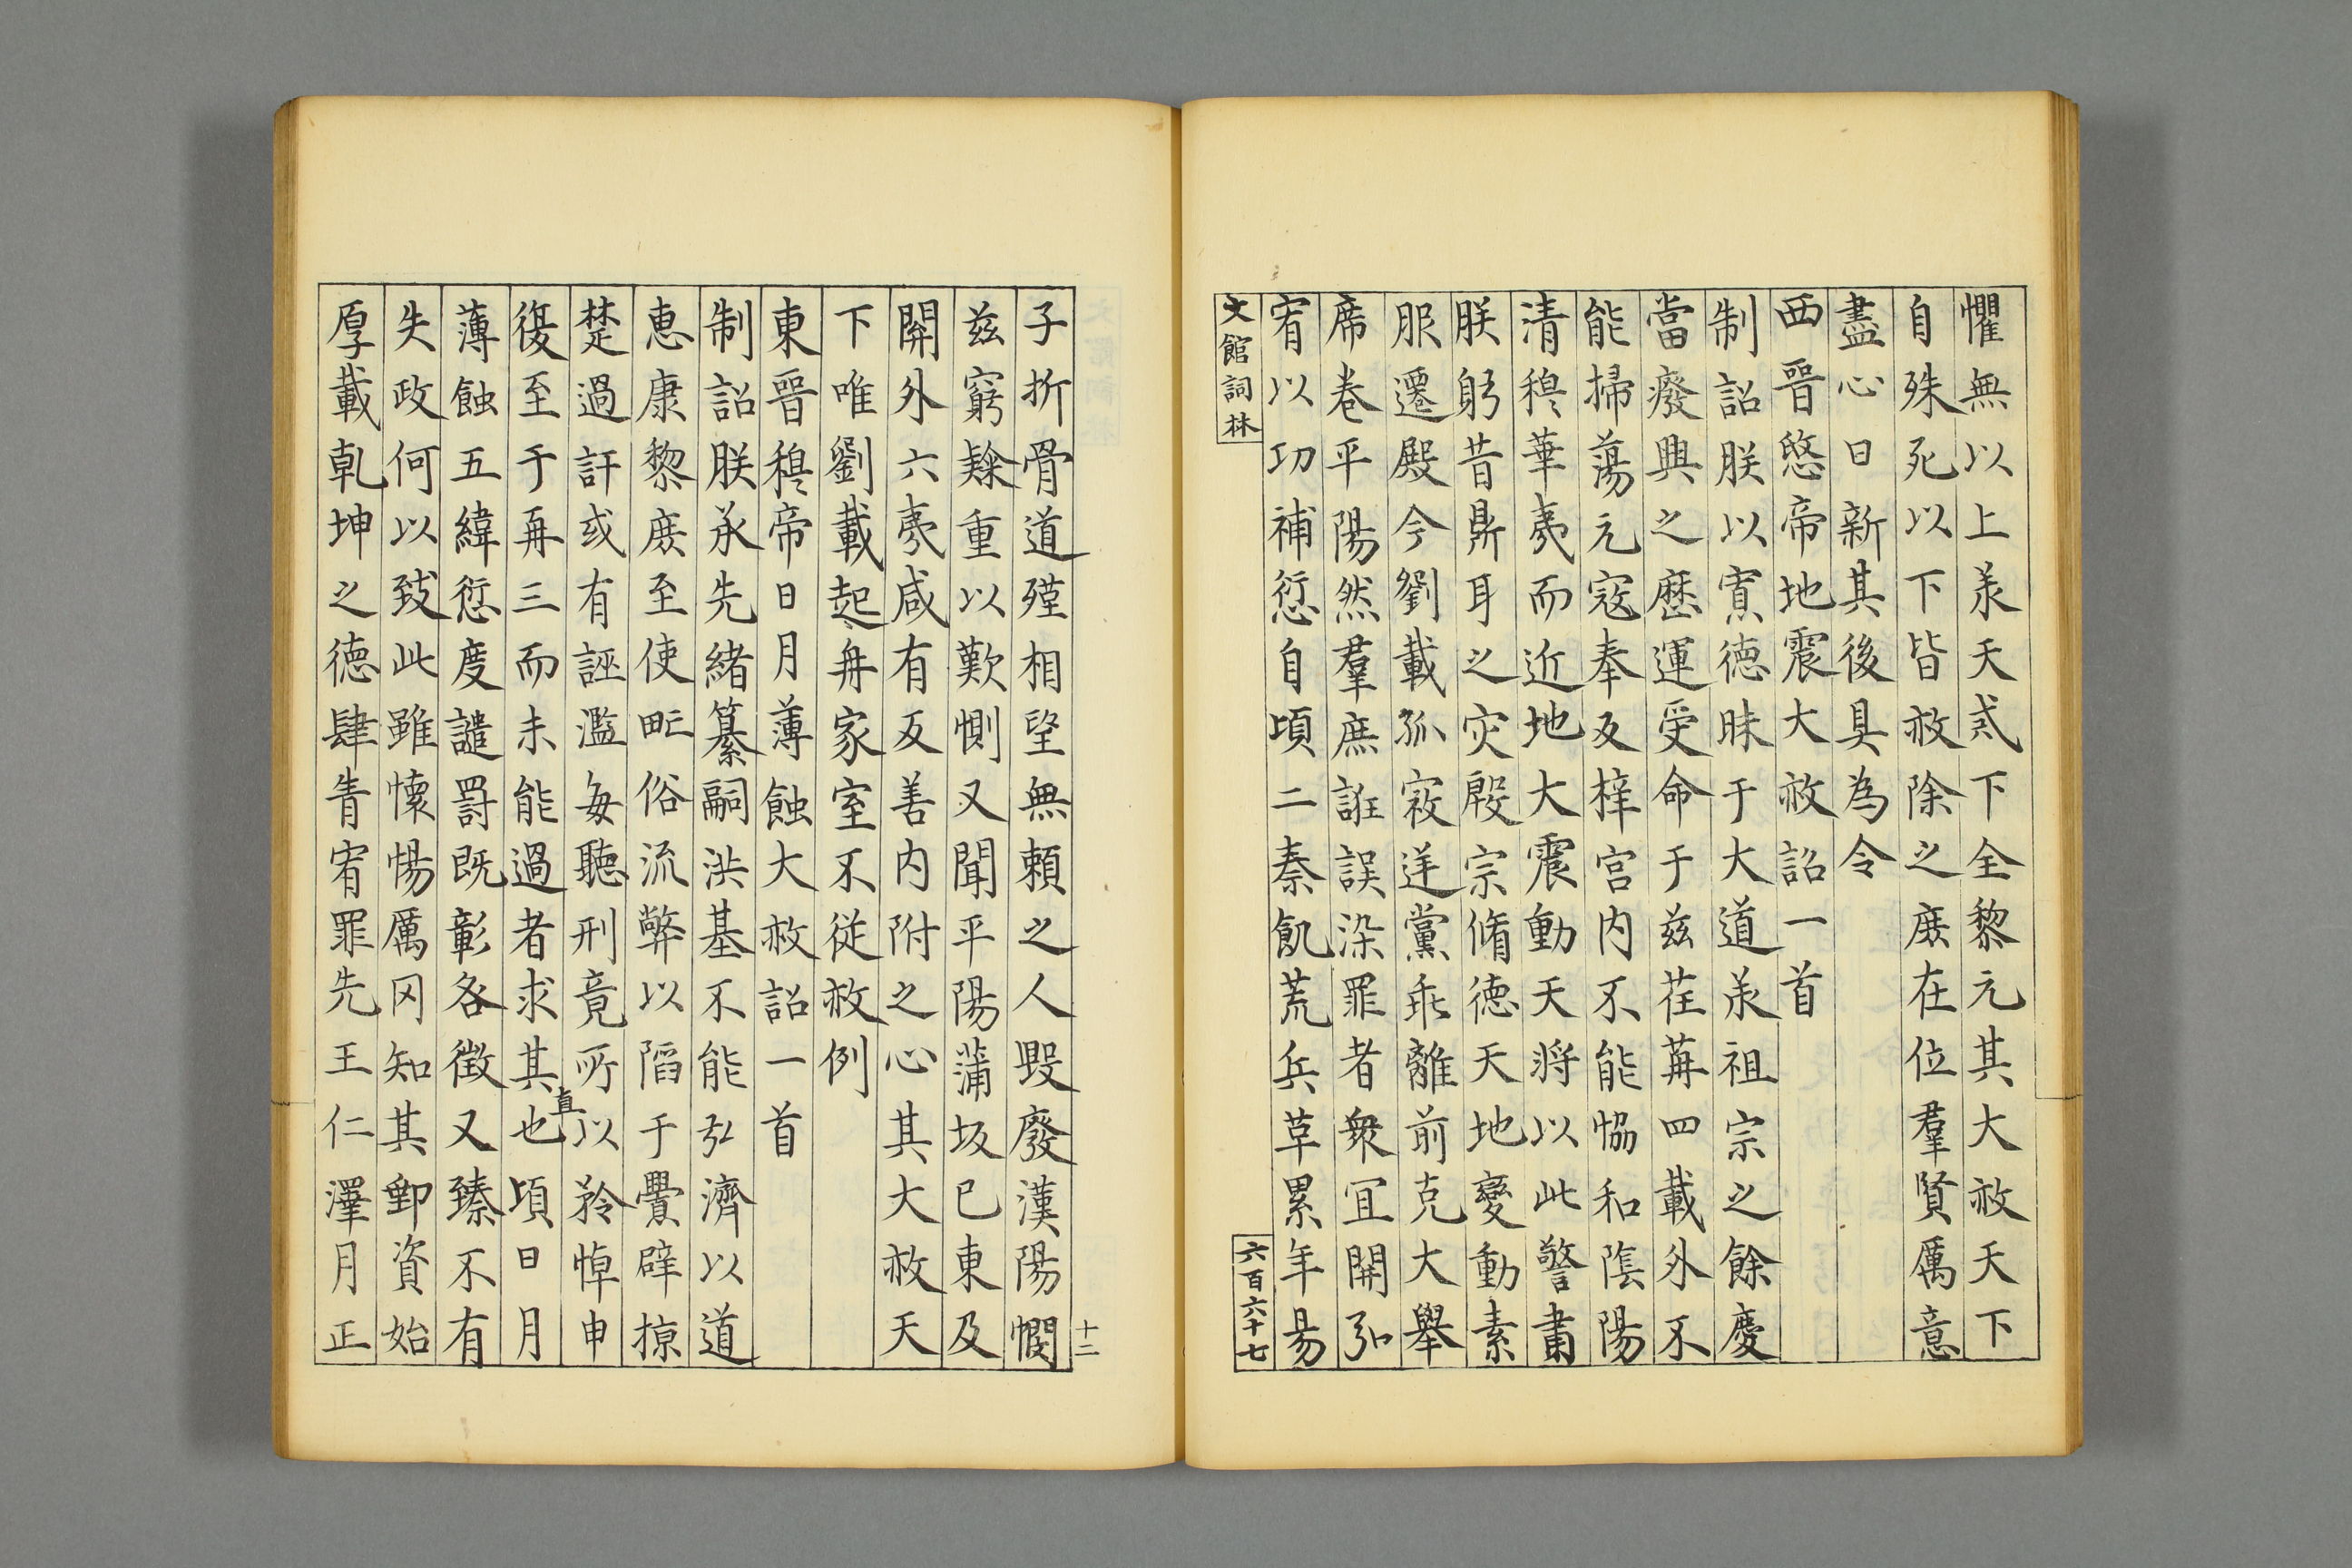 懼無以上羕天貳下全黎元其大赦天下
自殊死以下皆赦除之庶在位羣賢厲意
盡心日新其後具為令
西晉愍帝地震大赦詔一首
制詔朕以寡德昧于大道羕祖宗之餘慶
當癈興之歷運受命于兹荏苒四載外不
能掃蕩元寇奉反梓宮內不能協和陰陽
清穆華夷而近地大震動天將以此警肅
朕躬昔鼎耳之灾殷宗脩德天地變動素
服遷殿今劉載孤寇逆黨乖離前克大舉
席卷平陽然羣庶詿誤染罪者衆宜開弘
宥以功補愆自頃二秦飢荒兵草累年易
文館詞林
六百六十七
十二
子折骨道殣相望無賴之人毀廢漢陽憫
茲窮䌓重以歎惻又聞平陽蒲坂已東及
關外六夷咸有反善內附之心其大赦天
下唯劉載起舟家室不從赦例
東晉穆帝日月薄蝕大赦詔一首
制詔朕承先緒纂嗣洪基不能弘濟以道
惠康黎庶至使甿俗流弊以陷于釁辟掠
楚過訐或有誣濫每聽刑竟所以矜悼申
復至于再三而未能過者求其直也頃日月
薄蝕五緯愆度譴罰既彰咎徵又臻不有
失政何以致此雖懷惕厲罔知其郵資始
厚載乾坤之德肆眚宥罪先王仁澤月正